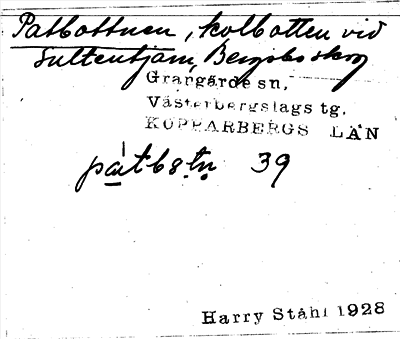 Patbottnen, kolbotten vid
Sultentjärn, Bergsbo skog
Grangärde sn.
Västerbergslags tg.
KOPPARBERGS LÄN
39
Harry Ståhl 1928